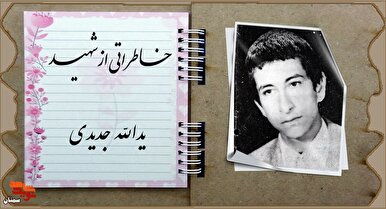 خاطراتی از شهید
یدالله جدیدی
سمنان